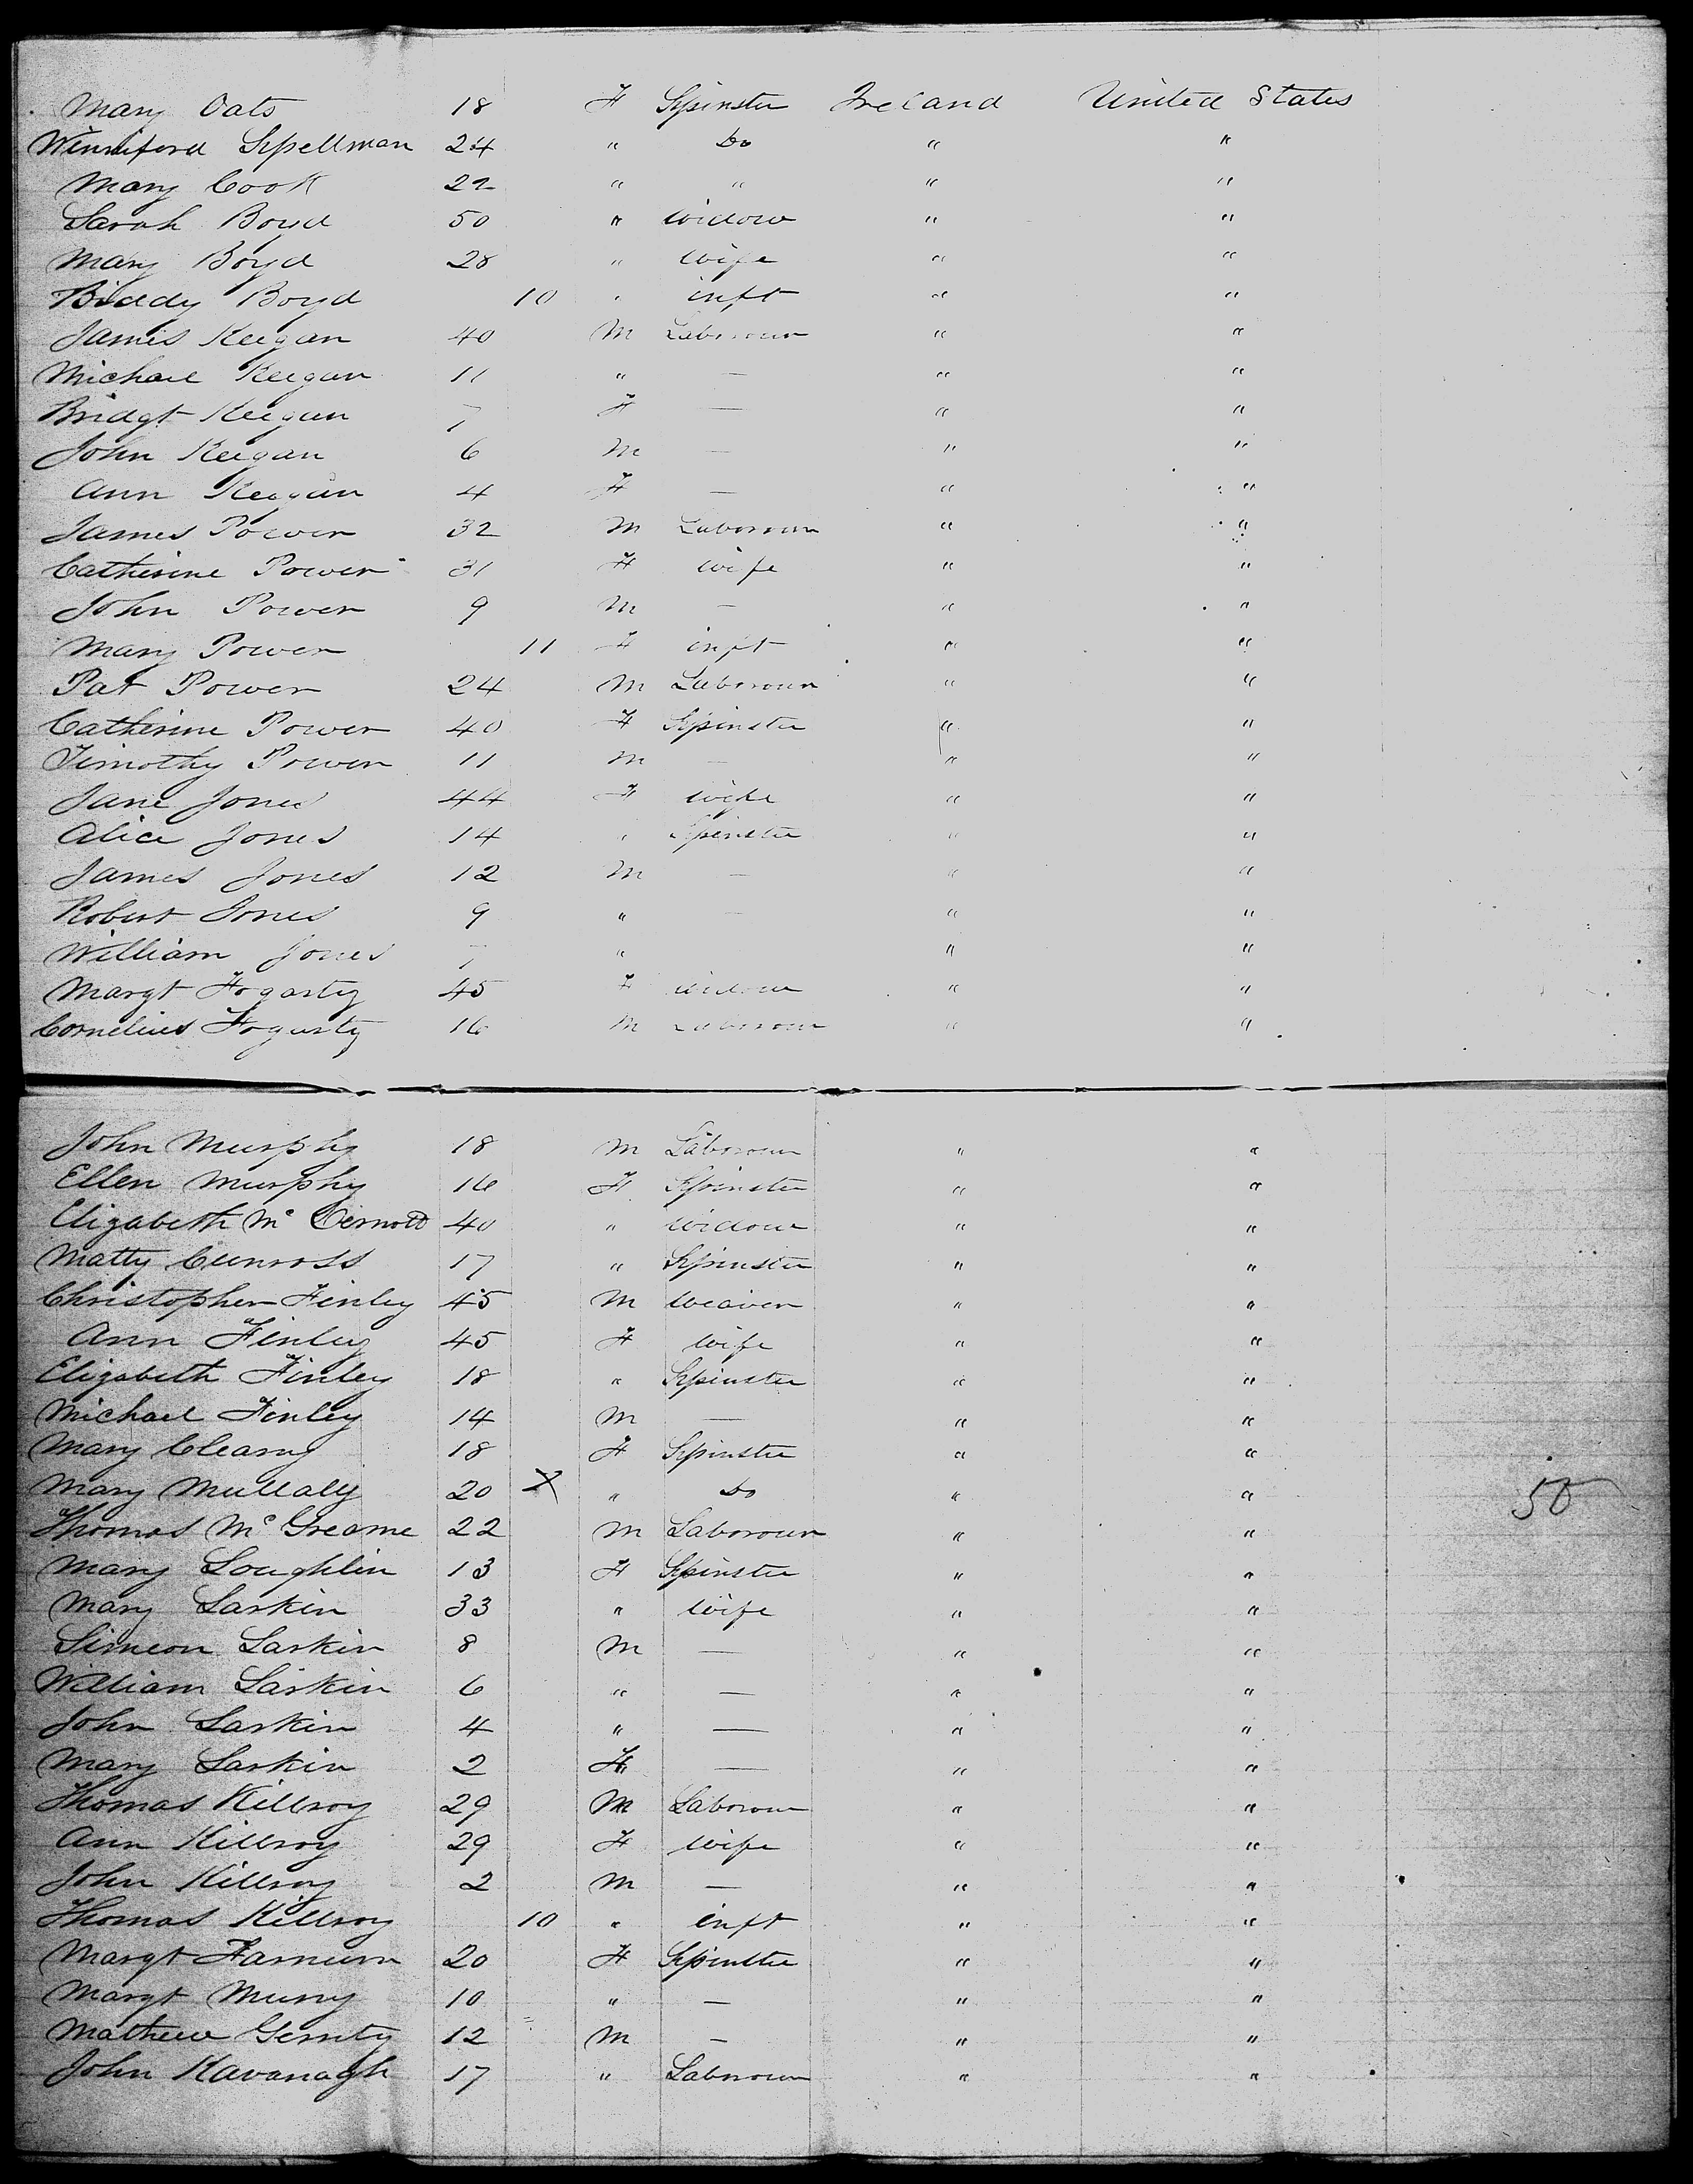 Mary Oats 18 F Spinster Ireland United States
Winniford Spellman 24 " Do " "
Mary Cook 22 " " " "
Sarah Boyd 50 " Widow " "
Mary Boyd 28 " Wife " "
Biddy Boyd 10 " inft " "
James Keegan 40 M Labourour " "
Michael Keegan 11 " — " "
Bridgt Keegan 7 F — " "
John Keegan 6 M — " "
Ann Keegan 4 F — " "
James Power 32 M Laborour " "
Catherine Power 31 F Wife " "
John Power 9 M — " "
Mary Power 11 F inft " "
Pat Power 24 M Laborour " "
Catherine Power 40 F Spinster " "
Timothy Power 11 M — " "
Jane Jones 44 F Wife " "
Alice Jones 14 " Spinster " "
James Jones 12 M — " "
Robert Jones 9 " — " "
William Jones 7 " " "
Margt Fogarty 45 F Widow " "
Cornelius Fogarty 16 M Laborour " "
John Murphy 18 M Laborour " "
Ellen Murphy 16 F Spinster " "
Elizabeth Mc 40 " Widow " "
Matty 17 " Spinster " "
Christopher Finley 45 M Weaver " "
Ann Finley 45 F Wife " "
Elizabeth Finley 18 " Spinster " "
Michael Finley 14 M — " "
Mary Cleary 18 F Spinster " "
Mary Mullaly 20 X " Do " " 50
Thomas Mc Greame 22 M Laborour " "
Mary Loughlin 13 F Spinster " "
Mary Larkin 33 " Wife " "
Simeon Larkin 8 M — " "
William Larkin 6 " — " "
John Larkin 4 " — " "
Mary Larkin 2 F — " "
Thomas Killroy 29 M Laborour " "
Ann Killroy 29 F Wife " "
John Killroy 2 M — " "
Thomas Killroy 10 " inft " "
Margt 20 F Spinster " "
Margt Murry 10 " — " "
Mathew Gerrity 12 M — " "
John Kavanagh 17 " Laborour " "